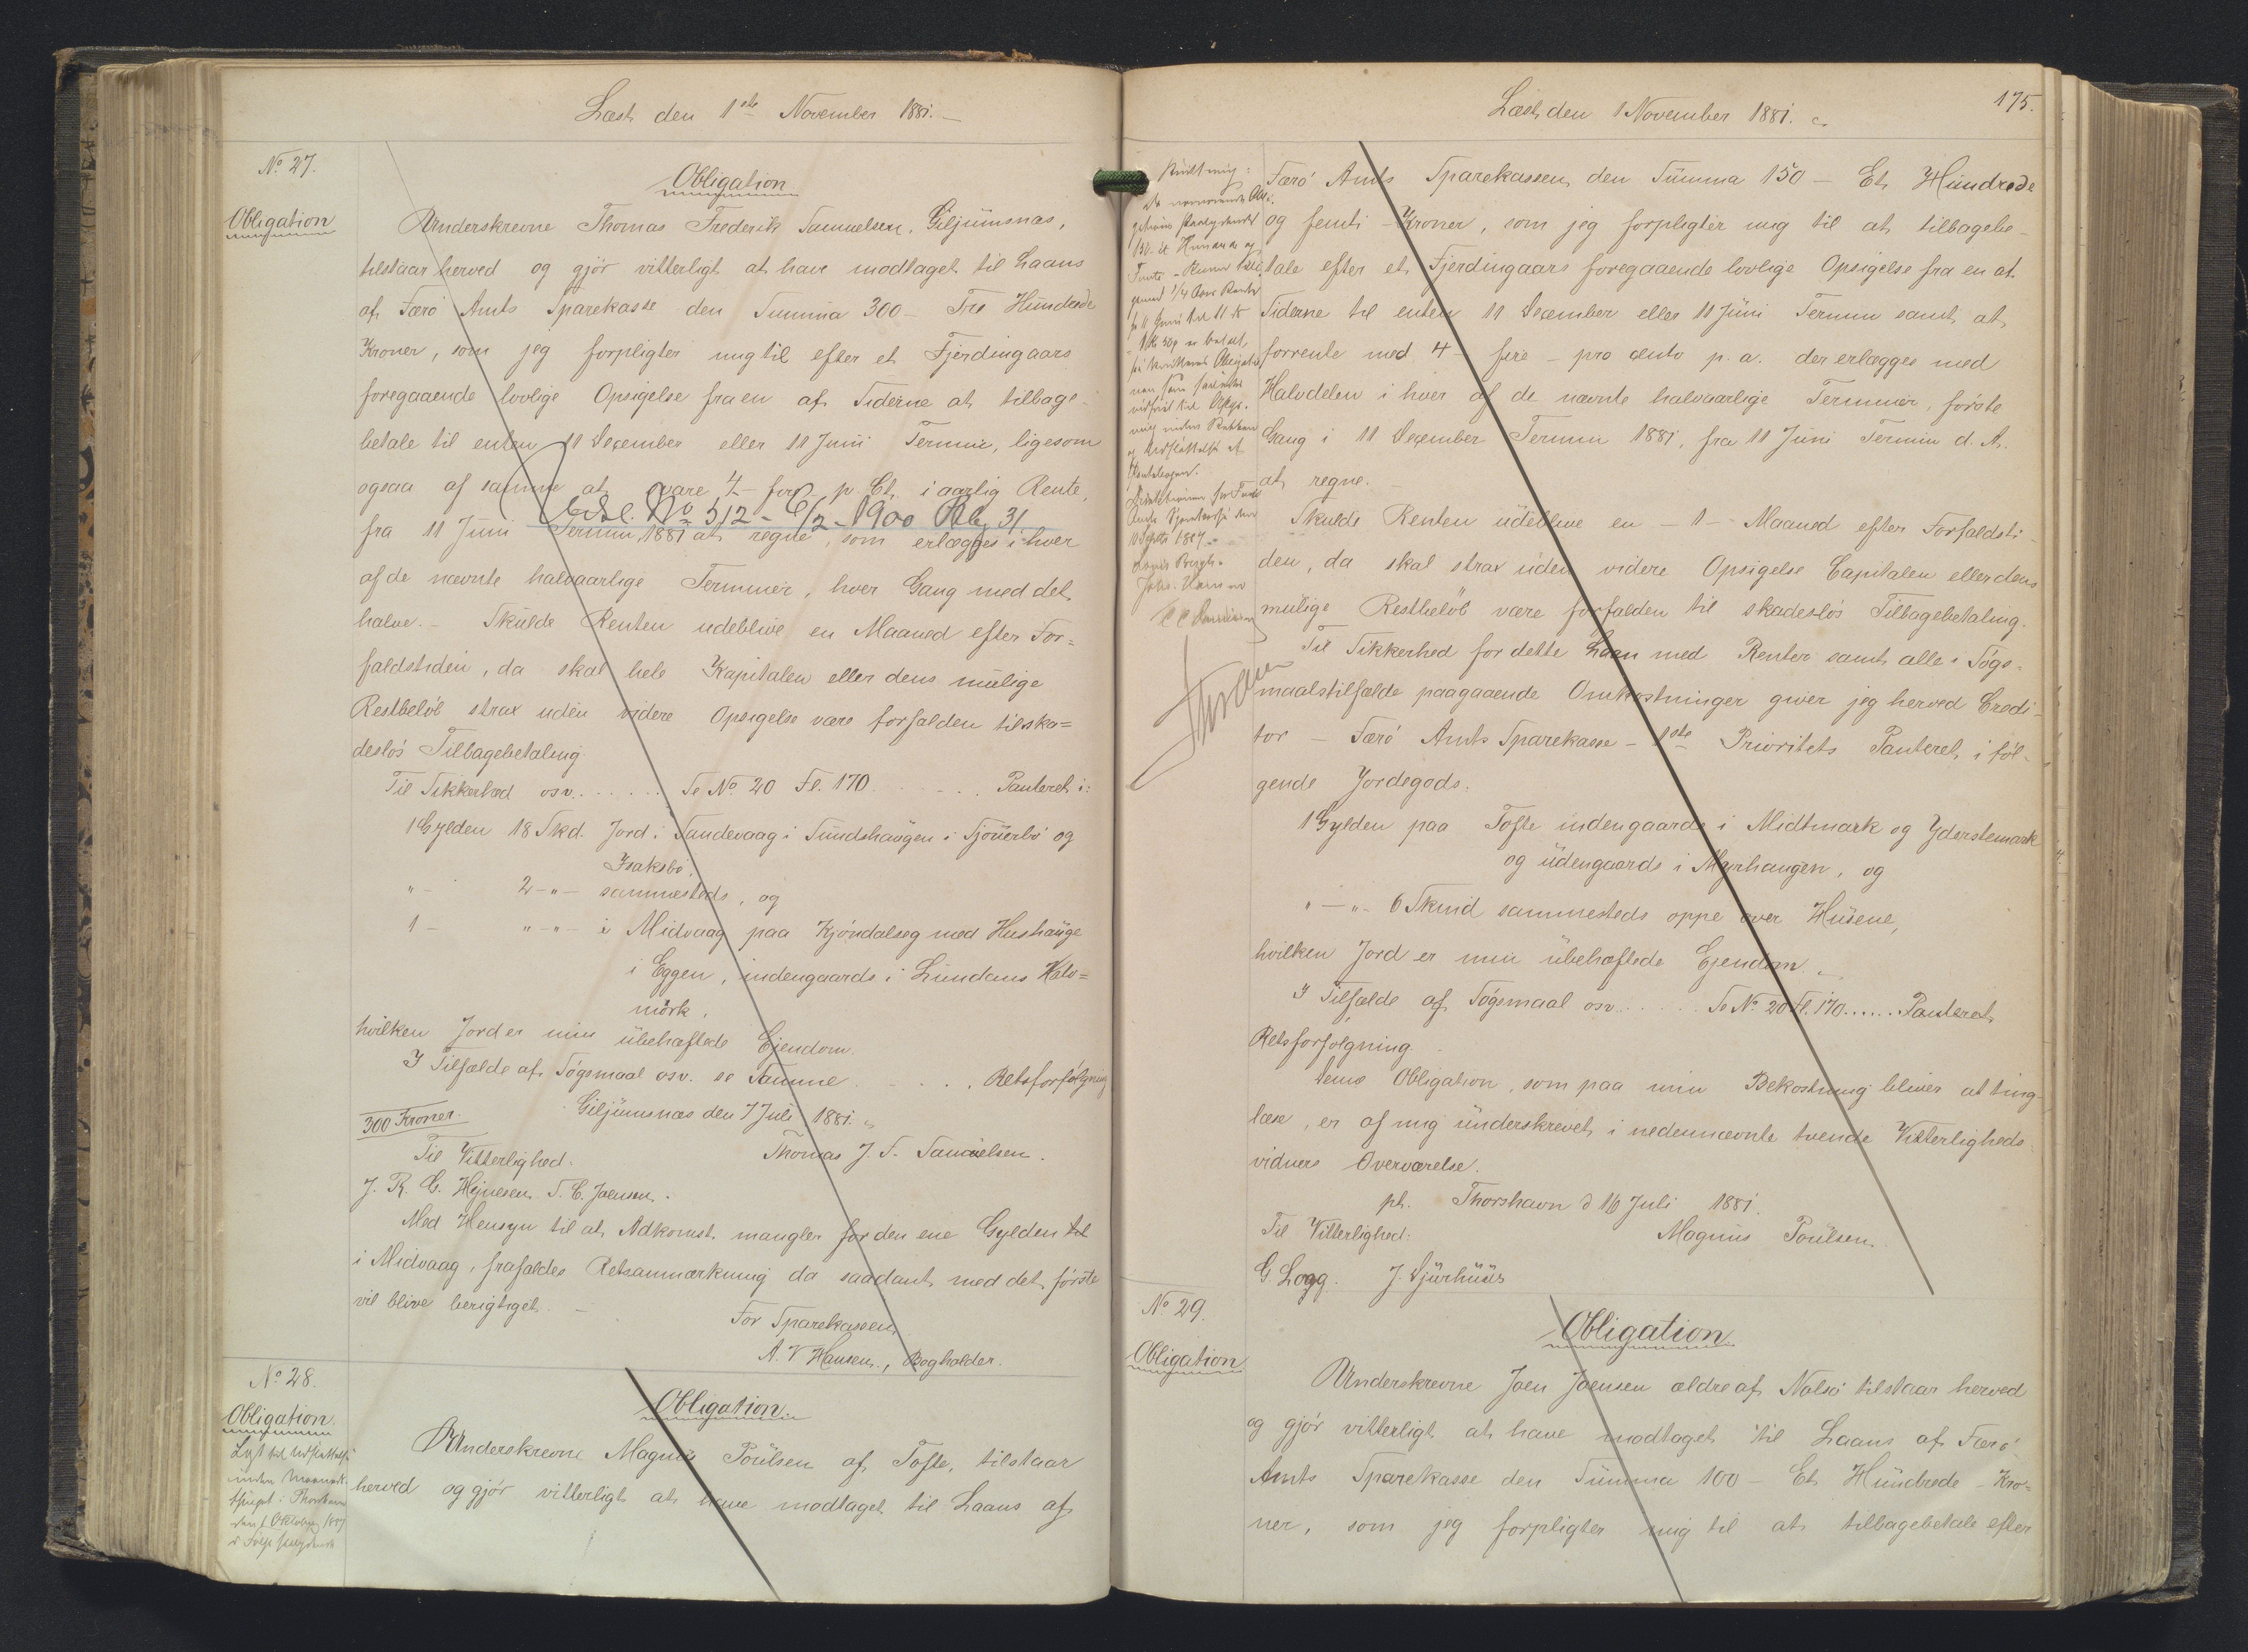 Læst den 1ste November 1881.
No 27.
Obligation
Obligation
Underskrevne Thomas Frederik Samuelsen, Giljumsnæs,
tilstaar herved og gjør vitterligt at have modtaget til Laans
af Færø Amts Sparekasse den Summa 300 - Tre Hundrede
Kroner, som jeg forpligter mig til efter et Fjerdingaars
foregaaende lovlige Opsigelse fra en af Siderne at tilbage-
betale til enten 11 December eller 11 Juni Termin, ligesom
ogsaa af samme at svare 4 - fire p. Ct. i aarlig Rente,
No 312 - 6/2 - 1900 31
fra 11 Juni Termin 1881 at regne, som erlægges i hver
af de nævnte halvaarlige Terminer, hver Gang med det
halve. - Skulde Renten udeblive en Maaned efter For=
faldstiden, da skal hele Kapitalen eller dens mulige
Restbeløb strax uden videre Opsigelse være forfalden til ska=
desløs Tilbagebetaling.
Til Sikkerhed osv. . . . . . . Se No 20 Fl. 170 . . . . . Panteret i:
1 Gylden 18 Skd. Jord i Sandevaag i Sundshaugen i Tjouerbø og
Isaksbø,
" - 2 - " - sammesteds, og
1 - " - " - i Midvaag paa Kjóndalseg med Hushauge
i Eggen, indengaards i Lundans Halv=
mørk,
hvilken Jord er min ubehæftede Ejendom.
I Tilfælde af Søgsmaal osv. se Samme . . . . . Retsforfølgning
300 Kroner.
Giljumnæs den 7 Juli 1881.
Til Vitterlighed.
Thomas J. F. Samuelsen.
J. R. C. Hejnesen. T. C. Joensen.
Med Hensyn til at Adkomst mangler for den ene Gylden til
i Midvaag, frafaldes Retsanmærkning da saadant med det første
vil blive berigtiget. -
For Sparekassen
A. V Hansen, Bogholder.
No 28.
Obligation
Obligation
Underskrevne Magnus Poulsen af Tofte, tilstaar
herved og gjør vitterligt at have modtaget til Laans af
Læst den 1 November 1881.
175.
Færø Amts Sparekassen den Summa 150 - Et Hundrede
og femti - Kroner, som jeg forpligter mig til at tilbagebe-
tale efter et Fjerdingaars foregaaende lovlige Opsigelse fra en af
Siderne til enten 11 December eller 11 Juni Termin samt at
forrente med 4 - fire - pro cento p. a. der erlægges med
Halvdelen i hver af de nævnte halvaarlige Terminer, første
Gang i 11 December Termin 1881, fra 11 Juni Termin d. A.
at regne. -
Skulde Renten udeblive en - 1 - Maaned efter Forfaldsti-
den, da skal strax uden videre Opsigelse Capitalen eller dens
mulige Restbeløb være forfalden til skadesløs Tilbagebetaling.
Til Sikkerhed for dette Laan med Renter samt alle i Søgs=
maalstilfælde paagaaende Omkostninger giver jeg herved Credi-
tor - Færø Amts Sparekasse - 1ste Prioritets Panteret i føl-
gende Jordegods:
1 Gylden paa Tofte indengaards i Midtmark og Yderstemark
og udengaards i Myrhaugen, og
" - " - 6 Skind sammesteds oppe over Husene,
hvilken Jord er min ubehæftede Ejendom.
I Tilfælde af Søgsmaal osv. . . . . Se No 20 Fl. 170 . . . . . . Panteret
Retsforfølgning.
Denne Obligation, som paa min Bekostning bliver at ting-
læse, er af mig underskrevet i nedennævnte tvende Vitterligheds
vidners Overværelse.
pt. Thorshavn d 16 Juli 1881.
Til Vitterlighed:
Magnus Poulsen
G Logg. J. Djurhuus
No 29.
Obligation
Obligation
Underskrevne Joen Joensen ældre af Nolsø tilstaar herved
og gjør vitterligt at have modtaget til Laans af Færø
Amts Sparekasse den Summa 100 - Et Hundrede - Kro=
ner, som jeg forpligter mig til at tilbagebetale efter